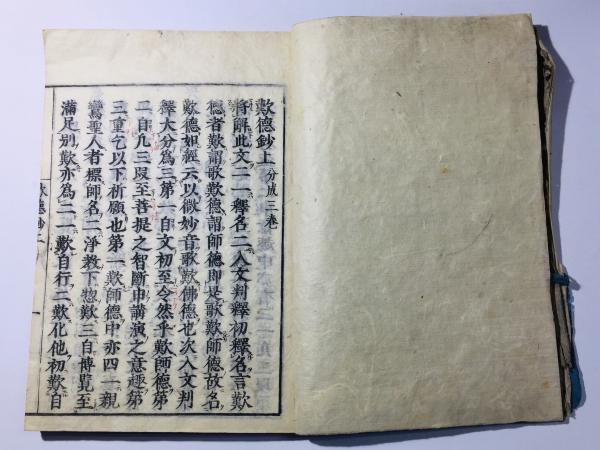 歎德鈔上 分成三卷
將解此文二一釋名二入文判釋初釋名言歎
德者歎謂歌歎德謂師德即是歌歎師德故名
歎德如經云以微妙音歌歎佛德也次入文判
釋大分為三第一自文初至令然乎歎師德第
二自凡三段至菩提之智斷申講演之意趣第
三重乞以下祈願也第一歎師德中亦四一親
鸞聖人者標師名二淨敎下惣歎三自博覽至
滿足別歎亦為二一歎自行二歎化他初歎自
歎德鈔上